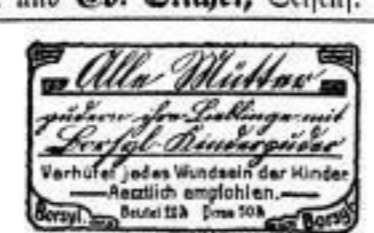 und Ed.
Alle Mütter
pudern ihre Lieblinge mit
Borsyl-Kinderpuder
Verhütet jedes Wundsein der Kinder
Aerztlich empfohlen.
Borsyl. Beutel Dose Borsyl